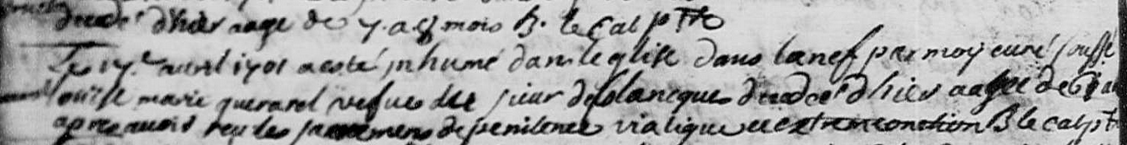 d'hier aagé de 7 a 8 mois B. le Cal ptre
Le 17.e avril 1701 a esté inhumé dans leglise dans la nef par moy curé soussi
Louise marie querarel vefue du sieur deslancques decedée d'hier aagee de
apres avoir reçu les sacremens de penitence viatique et extremeonction B le cal pt